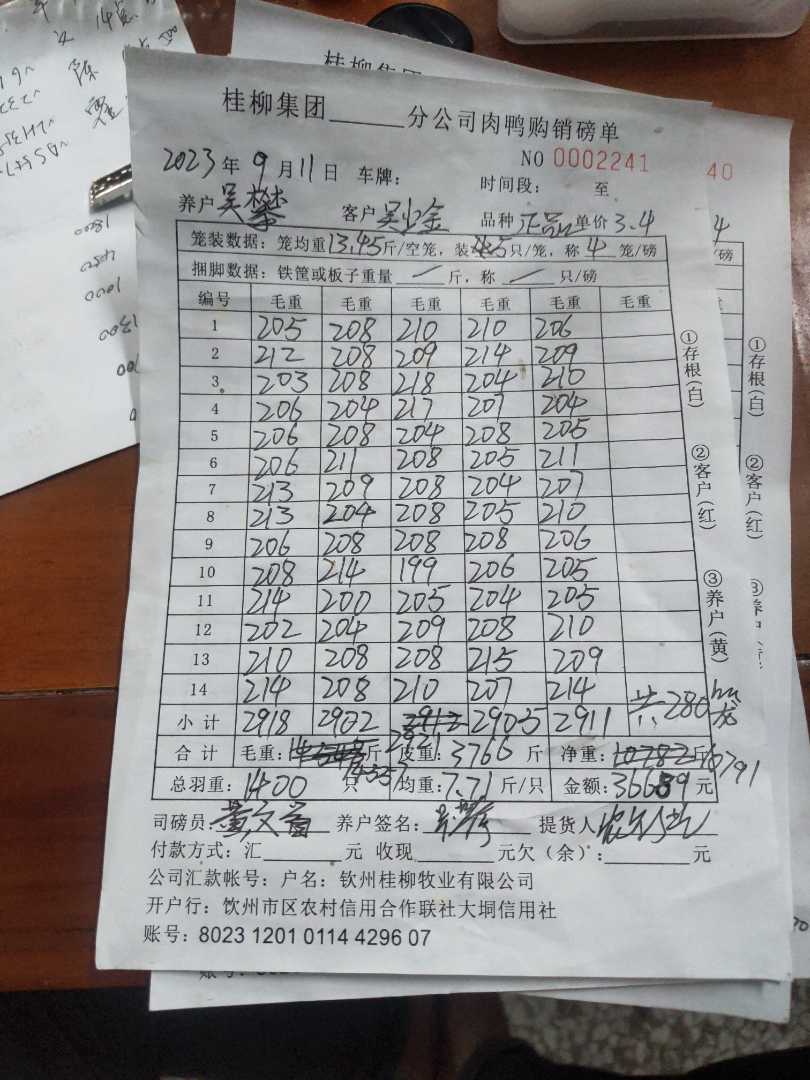 桂柳集团______分公司肉鸭购销磅单
NO 0002241
2023年9月11日 车牌: 时间段: 至
养户吴攀 客户吴业金 品种正品 单价3.4
笼装数据: 笼均重13.45斤/空笼, 装5只/笼, 称4笼/磅
捆脚数据: 铁筐或板子重量 / 斤, 称 / 只/磅
编号 毛重 毛重 毛重 毛重 毛重 毛重
1 205 208 210 210 206
2 212 208 209 214 209
3 203 208 218 204 210
4 206 204 217 207 204
5 206 208 204 208 205
6 206 211 208 205 211
7 213 209 208 204 207
8 213 204 208 205 210
9 206 208 208 208 206
10 208 214 199 206 205
11 214 200 205 204 205
12 202 204 209 208 210
13 210 208 208 215 209
14 214 208 210 207 214
共280笼
小计 2918 2902 2912 2905 2911
2921
合计 毛重: 斤 皮重: 3766 斤 净重: 10782 斤 10791
14557
总羽重: 1400 只 均重: 7.71 斤/只 金额: 36689 元
司磅员: 养户签名: 提货人
付款方式: 汇______元 收现______元欠(余): ______元
公司汇款帐号: 户名: 钦州桂柳牧业有限公司
开户行: 饮州市区农村信用合作联社大垌信用社
账号: 8023 1201 0114 4296 07
①存根(白) ②客户(红) ③养户(黄)
40
①存根(白) ②客户(红)